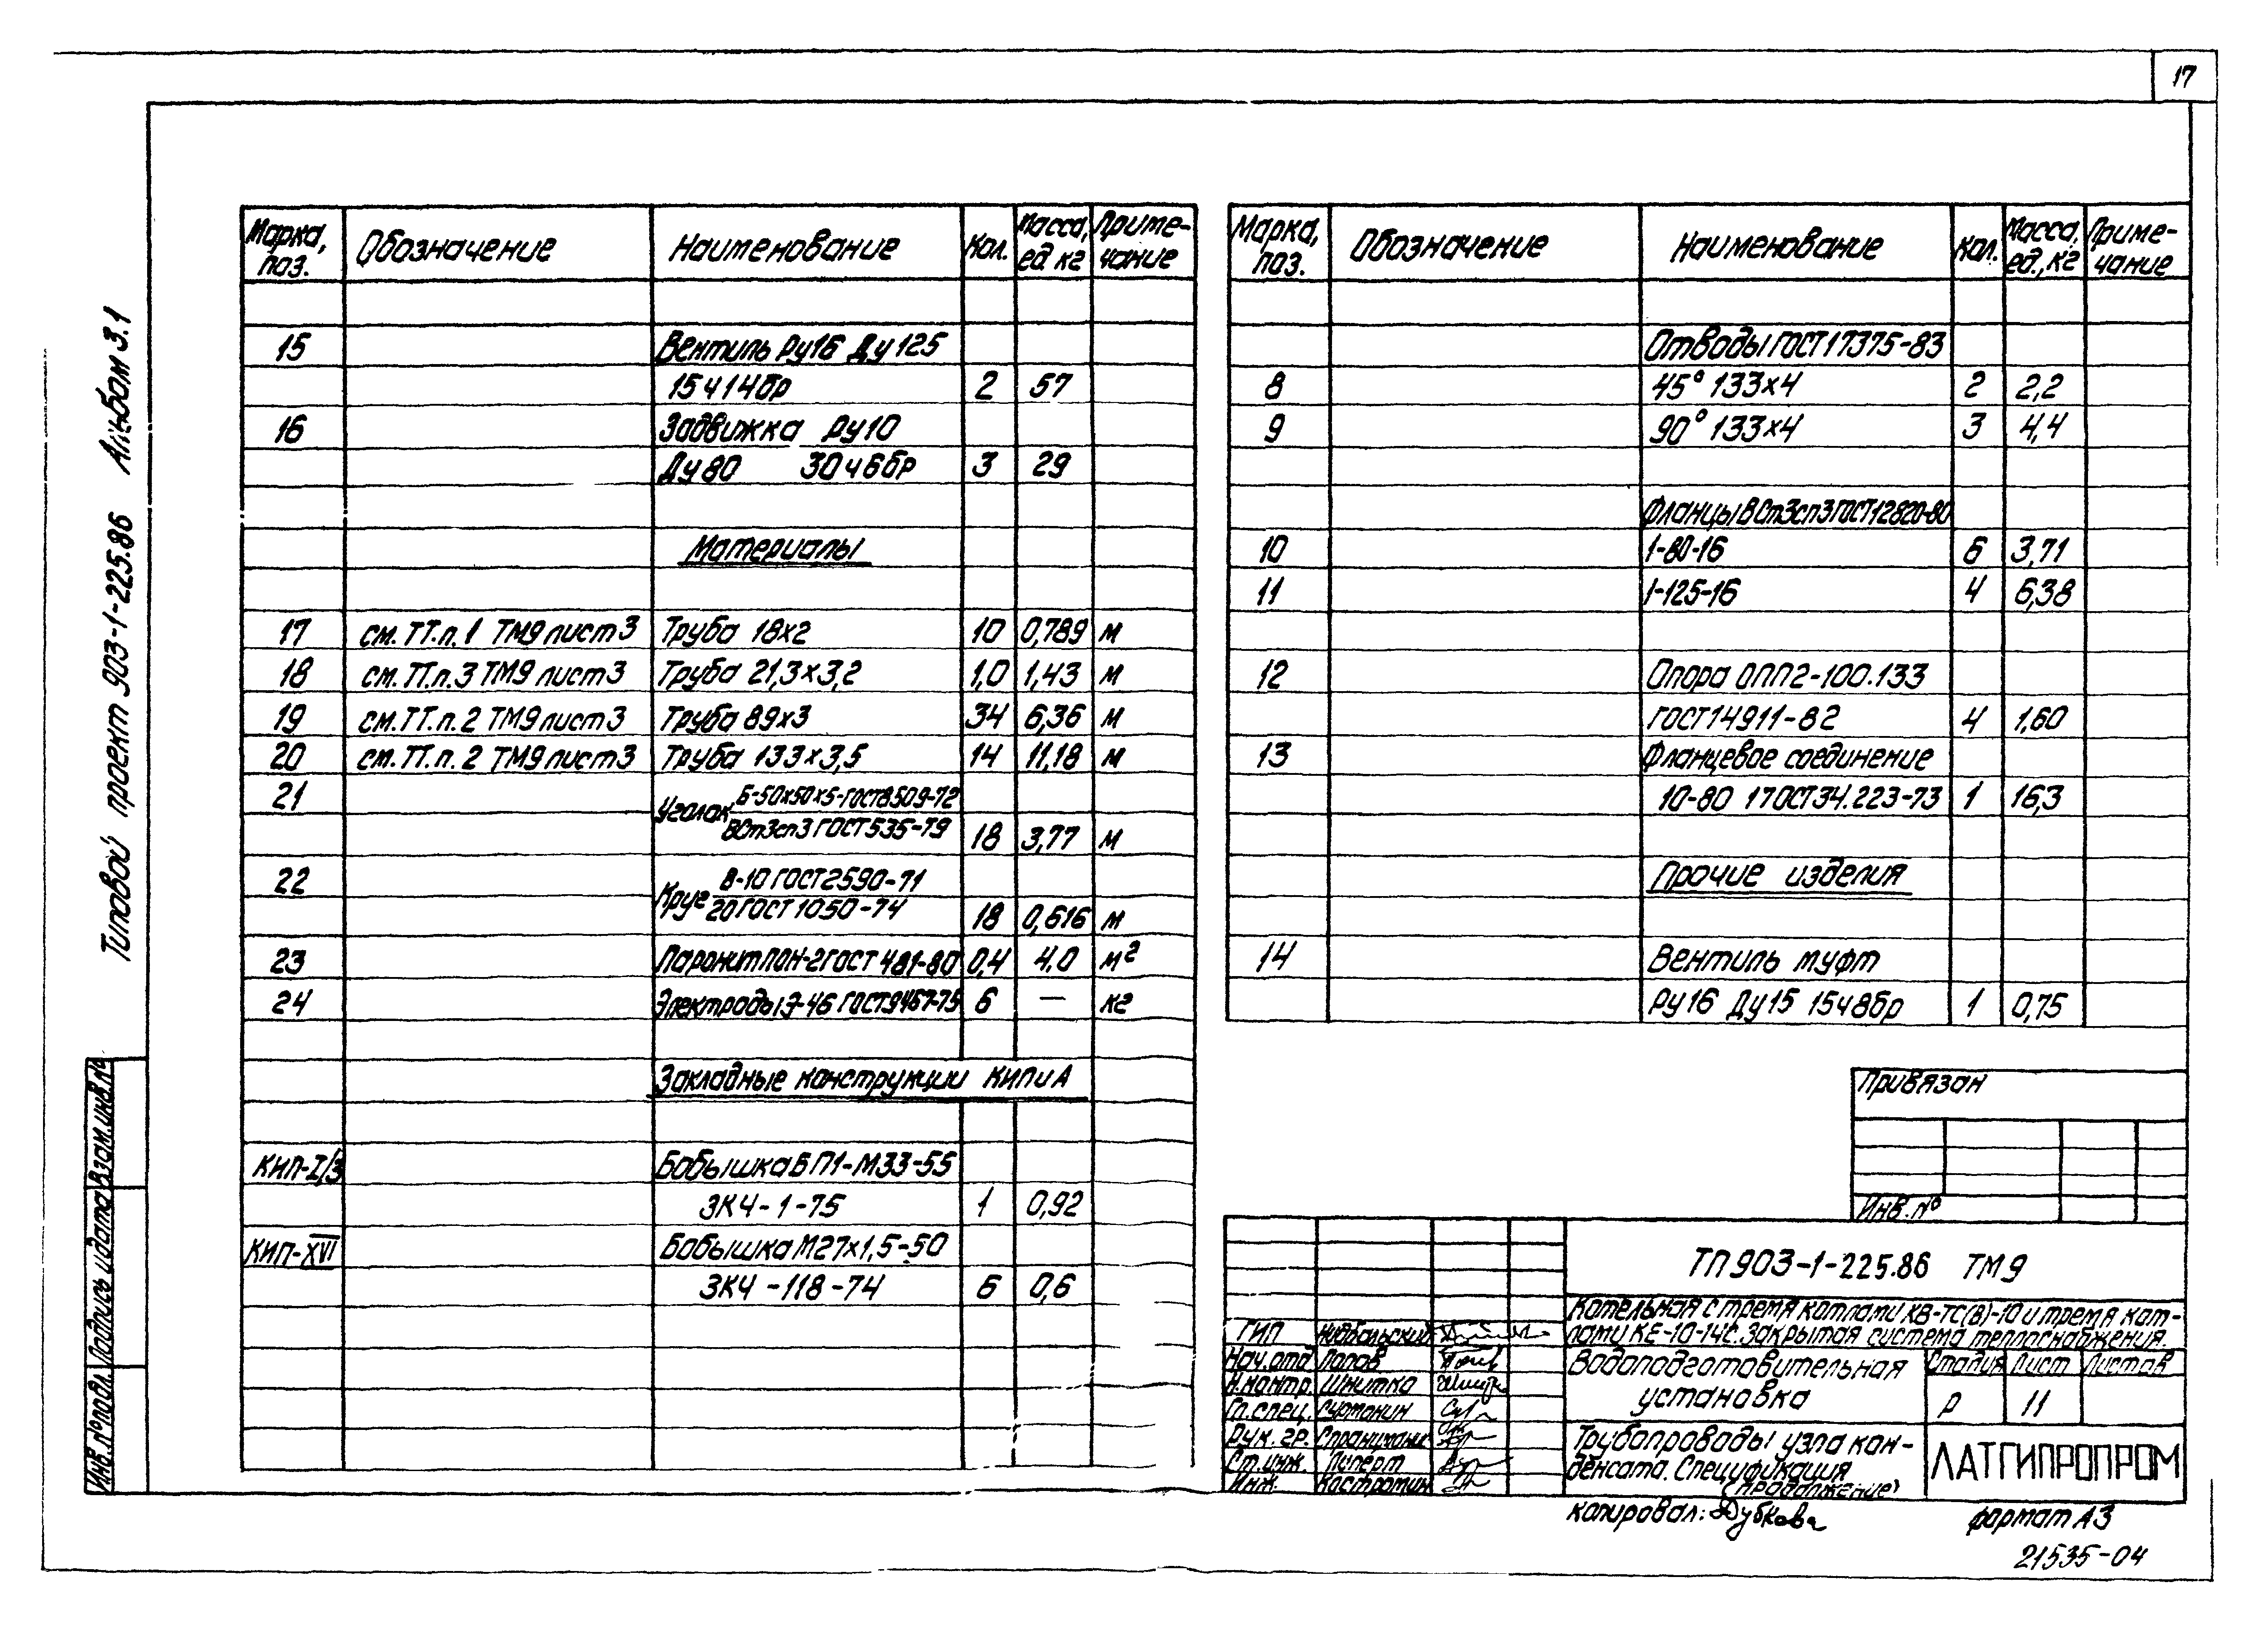 17
Типовой проект 903-1-225.86 Альбом 3.1
Марка, поз. Обозначение Наименование Кол. Масса, ед кг Приме-чание
15 Вентиль Ру16 Ду125
15ч14бр 2 57
16 Задвижка Ру10
Ду80 30ч6бр 3 29
Материалы
17 см. ТТ.п.1 ТМ9 лист3 Труба 18х2 10 0,789 м
18 см. ТТ.п.3 ТМ9 лист3 Труба 21,3х3,2 1,0 1,43 м
19 см. ТТ.п.2 ТМ9 лист3 Труба 89х3 34 6,36 м
20 см. ТТ.п.2 ТМ9 лист3 Труба 133х3,5 14 11,18 м
21 Уголок Б-50х50х5-ГОСТ8509-72
ВСт3сп3 ГОСТ535-79 18 3,77 м
22 Круг В-10 ГОСТ2590-71
20 ГОСТ1050-74 18 0,616 м
23 Паронит ПОН-2 ГОСТ 481-80 0,4 4.0 м²
24 Электроды Э-46 ГОСТ9467-75 6 — кг
Закладные конструкции КИПиА
КИП-I/3 Бобышка БП1-М33-55
ЗК4-1-75 1 0,92
КИП-XVI Бобышка М27х1,5-50
ЗК4-118-74 6 0,6
Марка, поз. Обозначение Наименование Кол. Масса, ед., кг Приме-чание
Отводы ГОСТ17375-83
8 45° 133х4 2 2,2
9 90° 133х4 3 4,4
Фланцы ВСт3сп3 ГОСТ12820-80
10 1-80-16 6 3,71
11 1-125-16 4 6,38
12 Опора ОПП2-100.133
ГОСТ14911-82 4 1,60
13 Фланцевое соединение
10-80 17ОСТ34.223-73 1 16,3
Прочие изделия
14 Вентиль муфт
Ру16 Ду15 15ч8бр 1 0,75
Привязан
Инв. №
ТП 903-1-225.86 ТМ9
Котельная с тремя котлами КВ-ТС(В)-10 и тремя кот-
лами КЕ-10-14с. Закрытая система теплоснабжения.
ГИП
Нач.отд Попов
Н.контр. Шнитка
Гл.спец.
Рук. гр.
Ст.инж.
Инж. Костромин
Водоподготовительная
установка
Стадия Лист Листов
Р 11
Трубопроводы узла кон-
денсата. Спецификация
(продолжение)
ЛАТГИПРОПРОМ
Копировал: Дубкова
формат А3
21535-04
Взам.инв.№
Подпись и дата
Инв.№подл.